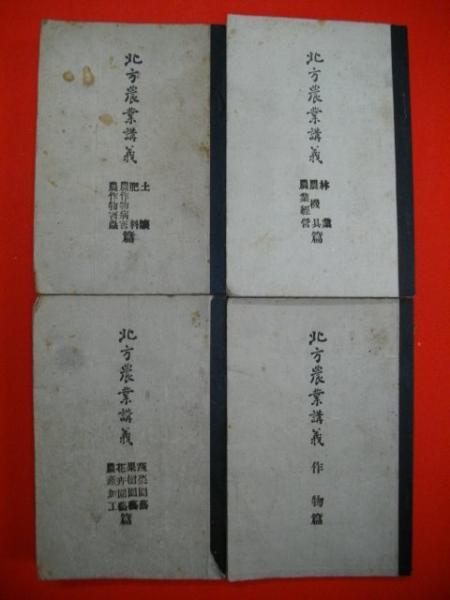 北方農業講義
土壤
肥料
農作物病害
農作物害蟲
篇
北方農業講義
林業
農機具
農業經營
篇
北方農業講義
蔬菜園藝
果樹園藝
花卉園藝
農產加工
篇
北方農業講義
作物篇